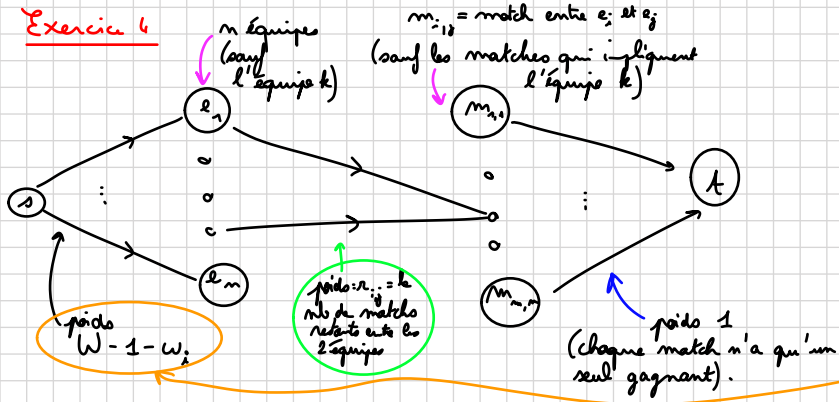 Exercice 4
n équipes
(sauf
l'équipe k)
m_{i,j} = match entre e_i et e_j
(sauf les matches qui impliquent
l'équipe k)
e_1
m_{1,1}
s
⋮
⋮
t
e_n
m_{n,n}
poids
W - 1 - w_i
poids : r_{ij} = le
nb de matchs
restants entre les
2 équipes
poids 1
(chaque match n'a qu'un
seul gagnant).